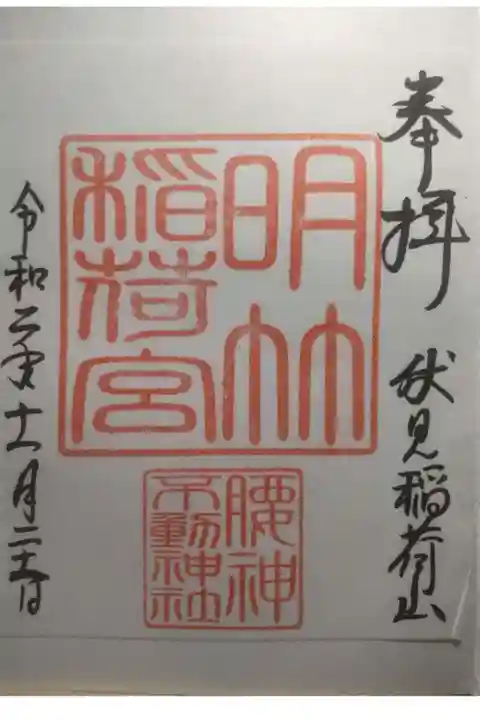 奉拝 伏見稲荷山
明竹
稲荷宮
腰神
不動神社
令和二年十一月二十日